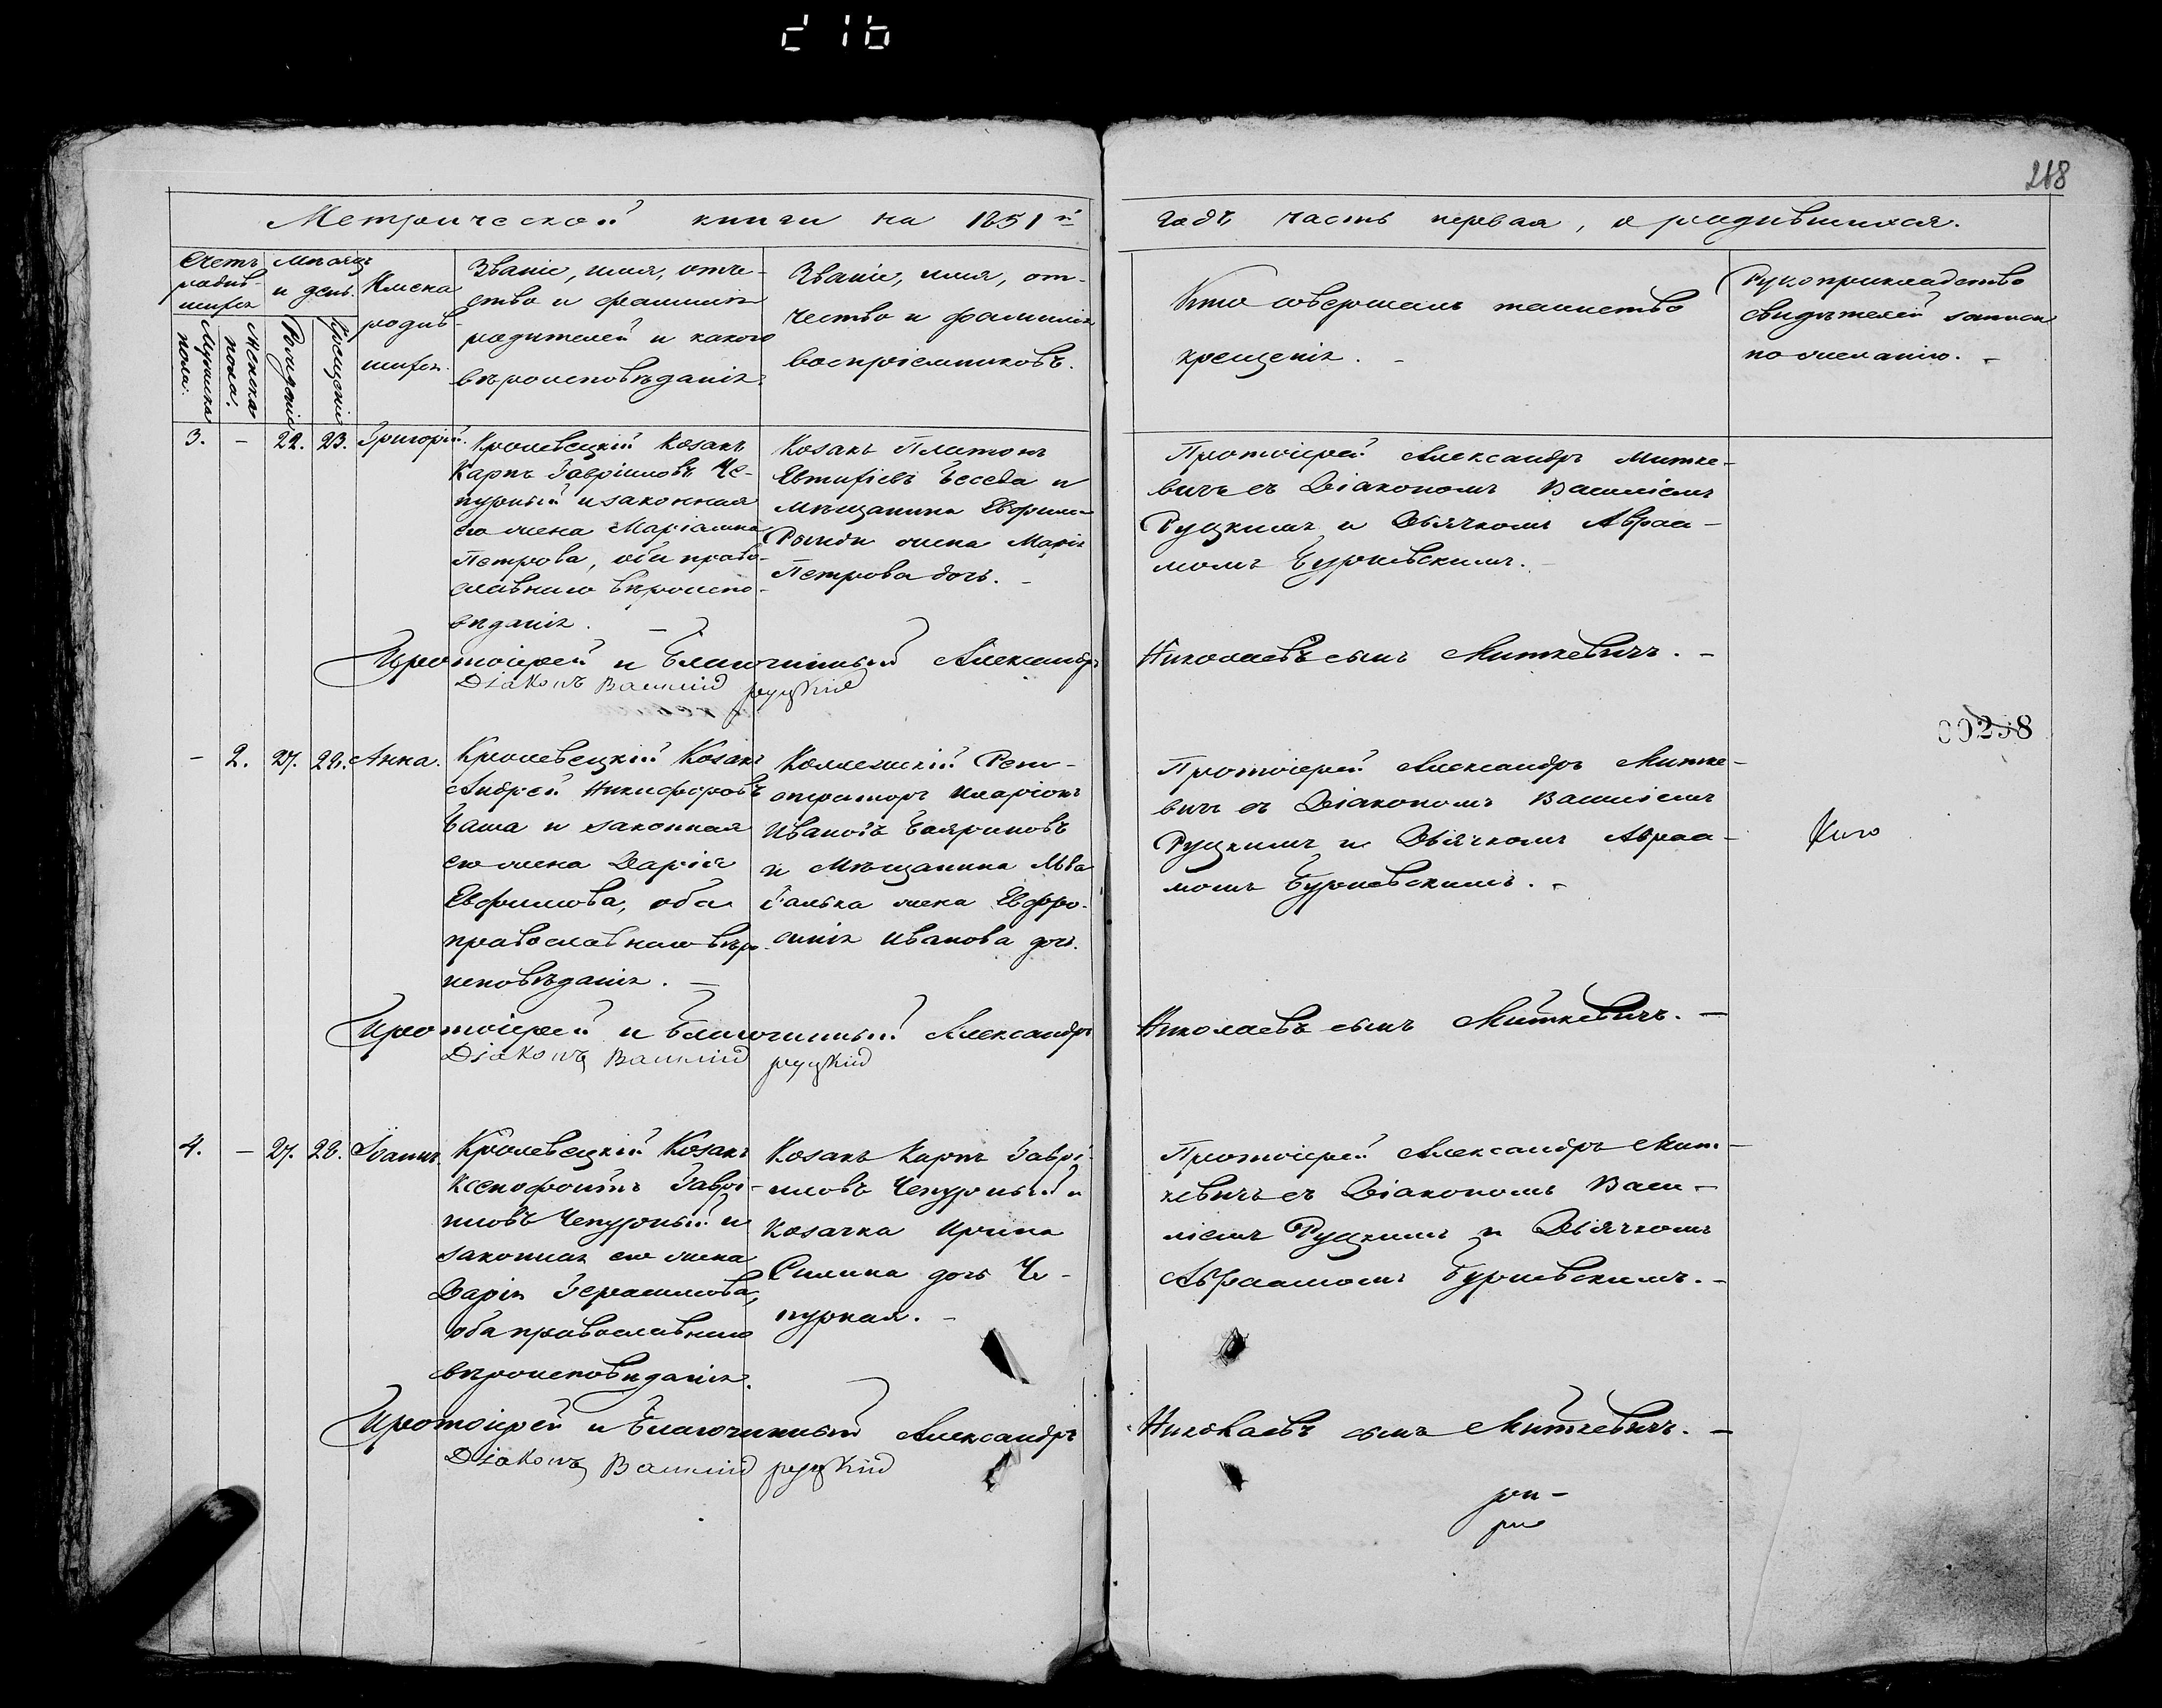 216
218
Метрической книги на 1851й
годъ часть первая, о родившихся.
Счетъ родив-
шихся
Мужска
пола.
Женска
пола.
Мѣсяцъ
и день.
Рожденія
Крещенія
Имена
родив-
шихся.
Званіе, имя, отче-
ство и фамилія
родителей и какого
вѣроисповѣданія.
Званіе, имя, от-
чество и фамилія
воспріемниковъ.
Кто совершалъ таинство
крещенія. -
Рукоприкладство
свидѣтелей записи
по желанію. -
3. - 22. 23. Григорій.
Кролевецкій Козакъ
Карпъ Гавріиловъ Че-
пурный и законная
его жена Маріамна
Петрова, оба право-
славнаго вѣроиспо-
вѣданія. -
Козакъ Платонъ
Евтифіевъ Беседа и
Мѣщанина Ефима
жена Марія
Петрова дочь. -
Протоіерей Александръ Митке-
вичь съ Діакономъ Василіемъ
Руцкимъ и Дьячкомъ Авраа-
момъ Бурчевскимъ. -
Протоіерей и Благочинный Александръ Николаевъ сынъ Миткевичъ. -
Діаконъ Василій руцкій
00258
- 2. 27. 28. Анна.
Кролевецкій Козакъ
Андрей Никифоровъ
Баша и законная
его жена Дарія
Ефимова, оба
православнаго вѣро-
исповѣданія. -
Коллежскій Реги-
страторъ Иларіонъ
Ивановъ Бояриновъ
и Мѣщанина Льва
Галька жена Евфро-
синія Иванова дочь.
Протоіерей Александръ Митке-
вичъ съ Діакономъ Василіемъ
Руцкимъ и Дьячкомъ Авраа-
момъ Бурчевскимъ. -
Протоіерей и Благочинный Александръ Николаевъ сынъ Миткевичъ. -
Діаконъ Василій руцкій
4. - 27. 28. Іоаннъ.
Кролевецкій Козакъ
Ксенофонтъ Гаврі-
иловъ Чепурный и
законная его жена
Дарія Герасимова,
оба православнаго
вѣроисповѣданія.
Козакъ Карпъ Гаврі-
иловъ Чепурный и
Козачка Ирина
Силина дочь Че-
пурная. -
Протоіерей Александръ Мит-
кевичь съ Діакономъ Васи-
ліемъ Руцкимъ и Дьячкомъ
Авраамомъ Бурчевскимъ. -
Протоіерей и Благочинный Александръ Николаевъ сынъ Миткевичъ. -
Діаконъ Василій руцкій